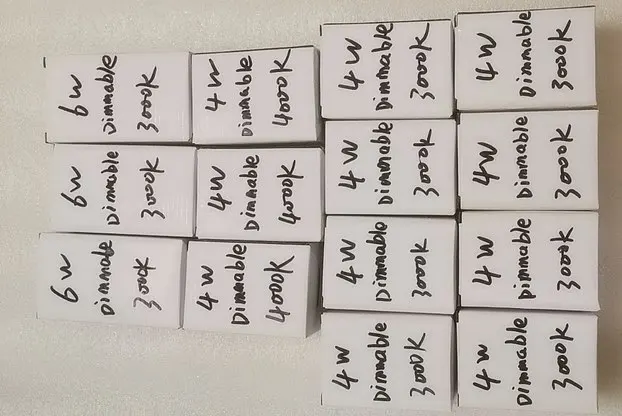 6W
Dimmable
3000K
4W
Dimmable
4000K
4W
Dimmable
3000K
4W
Dimmable
3000K
6W
Dimmable
3000K
4W
Dimmable
4000K
4W
Dimmable
3000K
4W
Dimmable
3000K
6W
Dimmable
300K
4W
Dimmable
4000K
4W
Dimmable
3000K
4W
Dimmable
3000K
4W
Dimmable
3000K
4W
Dimmable
3000K